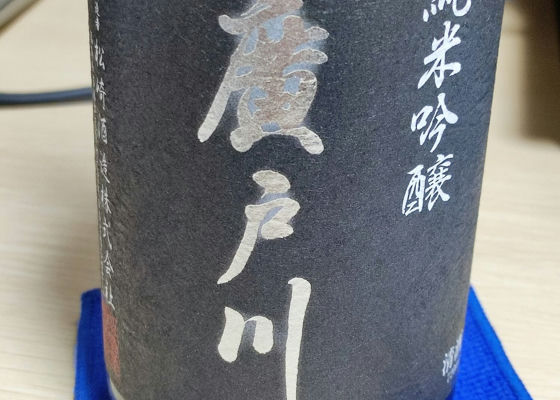 純米吟醸
廣戸川
松崎酒造株式会社
清酒